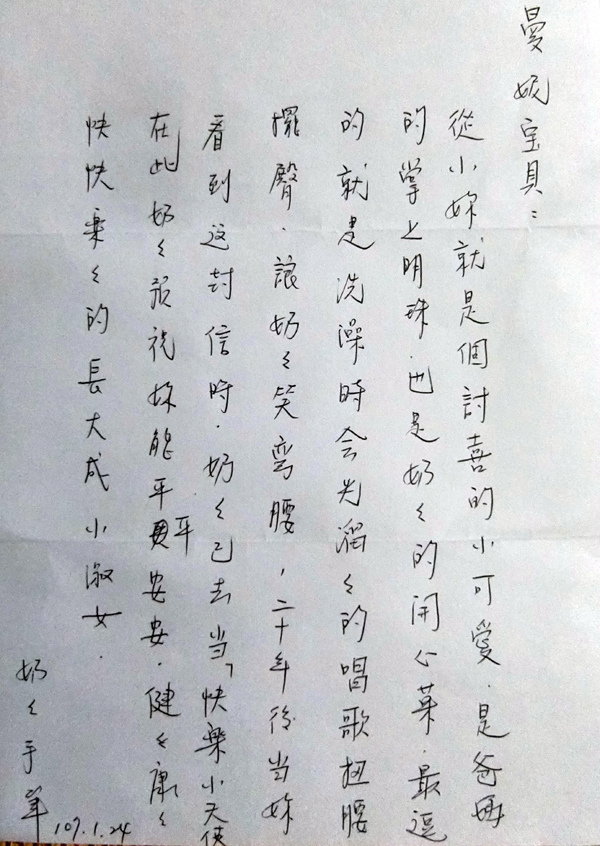 曼妮宝貝：
從小妳就是個討喜的小可愛．是爸媽
的掌上明珠．也是奶々的開心菓．最逗
的就是洗澡時会光溜々的唱歌扭腰
擺臀．讓奶々笑弯腰，二十年後当妳
看到这封信時．奶々已去当「快樂小天使
在此奶々預祝妳能平平安安．健々康々
快快乐々的長大成小淑女．
奶々手筆
107.1.24